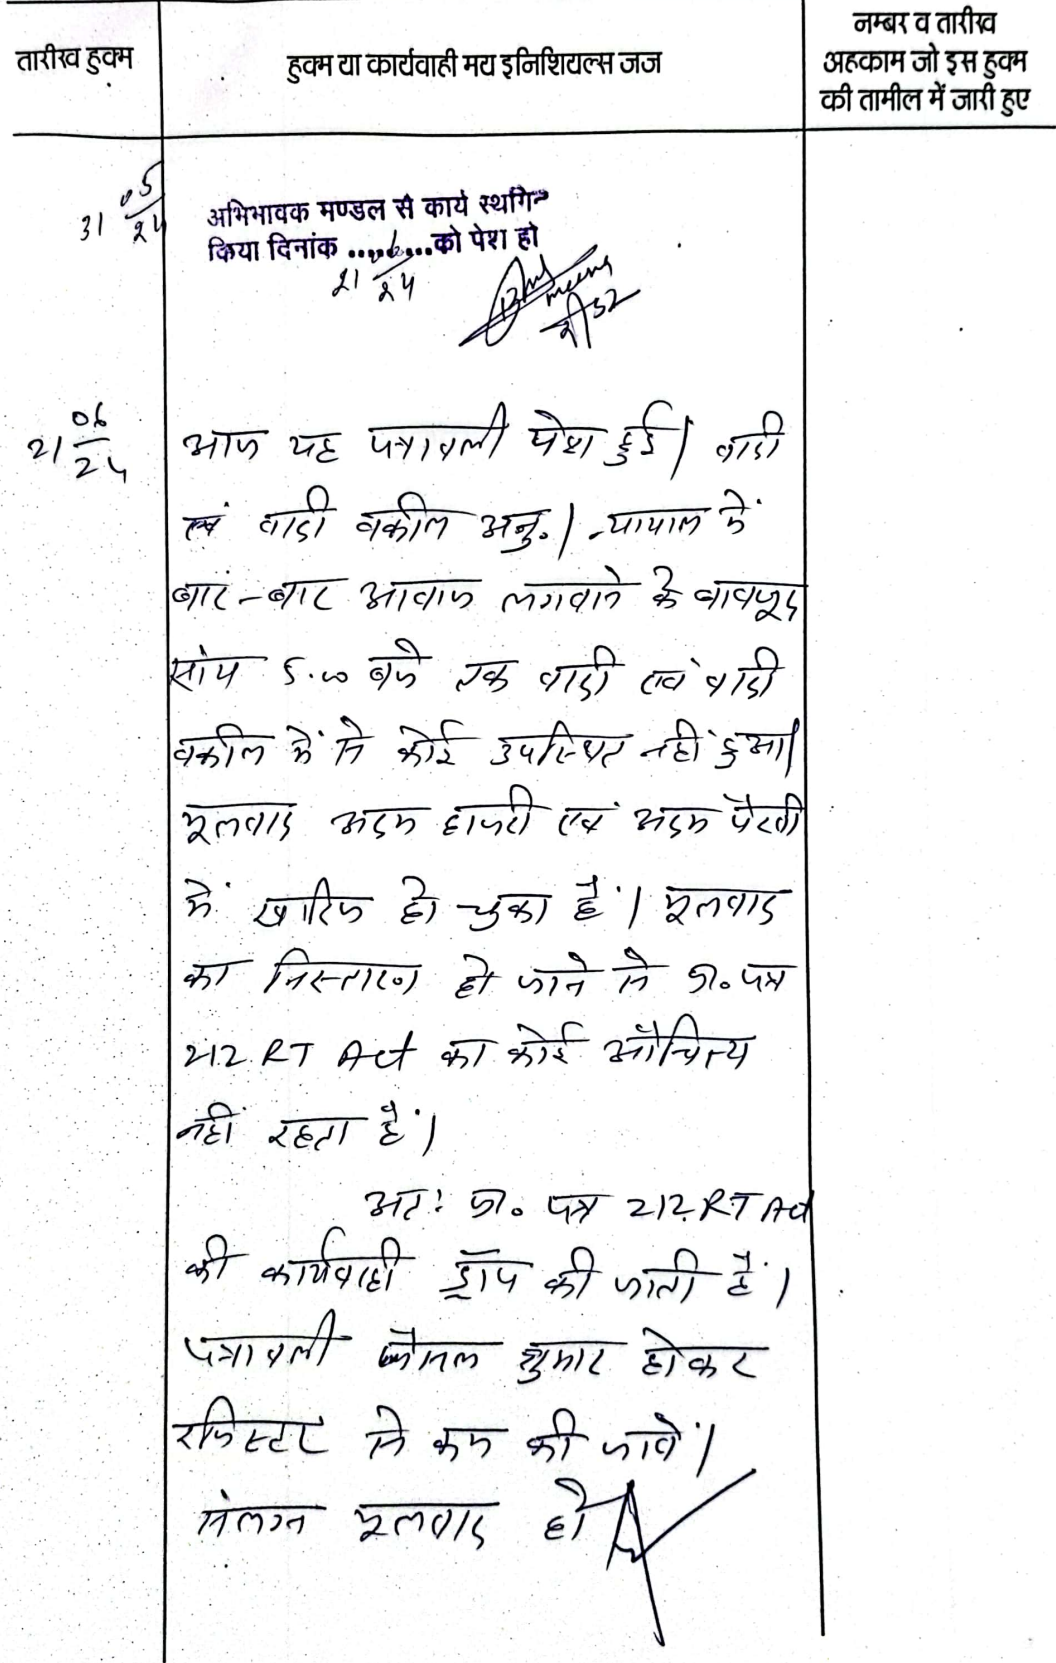 तारीख हुक्म
हुक्म या कार्यवाही मय इनिशियल्स जज
नम्बर व तारीख
अहकाम जो इस हुक्म
की तामील में जारी हुए
31 05/24
अभिभावक मण्डल से कार्य स्थगित
किया दिनांक ....6....को पेश हो
21 24
21 06/24
आज यह पत्रावली पेश हुई। वादी
एवं वादी वकील अनु.। न्यायाल में
बार-बार आवाज लगवाने के बावजूद
सांय 5.00 बजे तक वादी एवं वादी
वकील में से कोई उपस्थित नहीं हुआ।
मूलवाद अदम हाजरी एवं अदम पैरवी
में खारिज हो चुका है। मूलवाद
का निस्तारण हो जाने से प्रा. पत्र
212 RT Act का कोई औचित्य
नहीं रहता है।
अतः प्रा. पत्र 212 RT Act
की कार्यवाही ड्रॉप की जाती है।
पत्रावली फैसल शुमार होकर
रजिस्टर से कम की जावे।
संलग्न मूलवाद हो